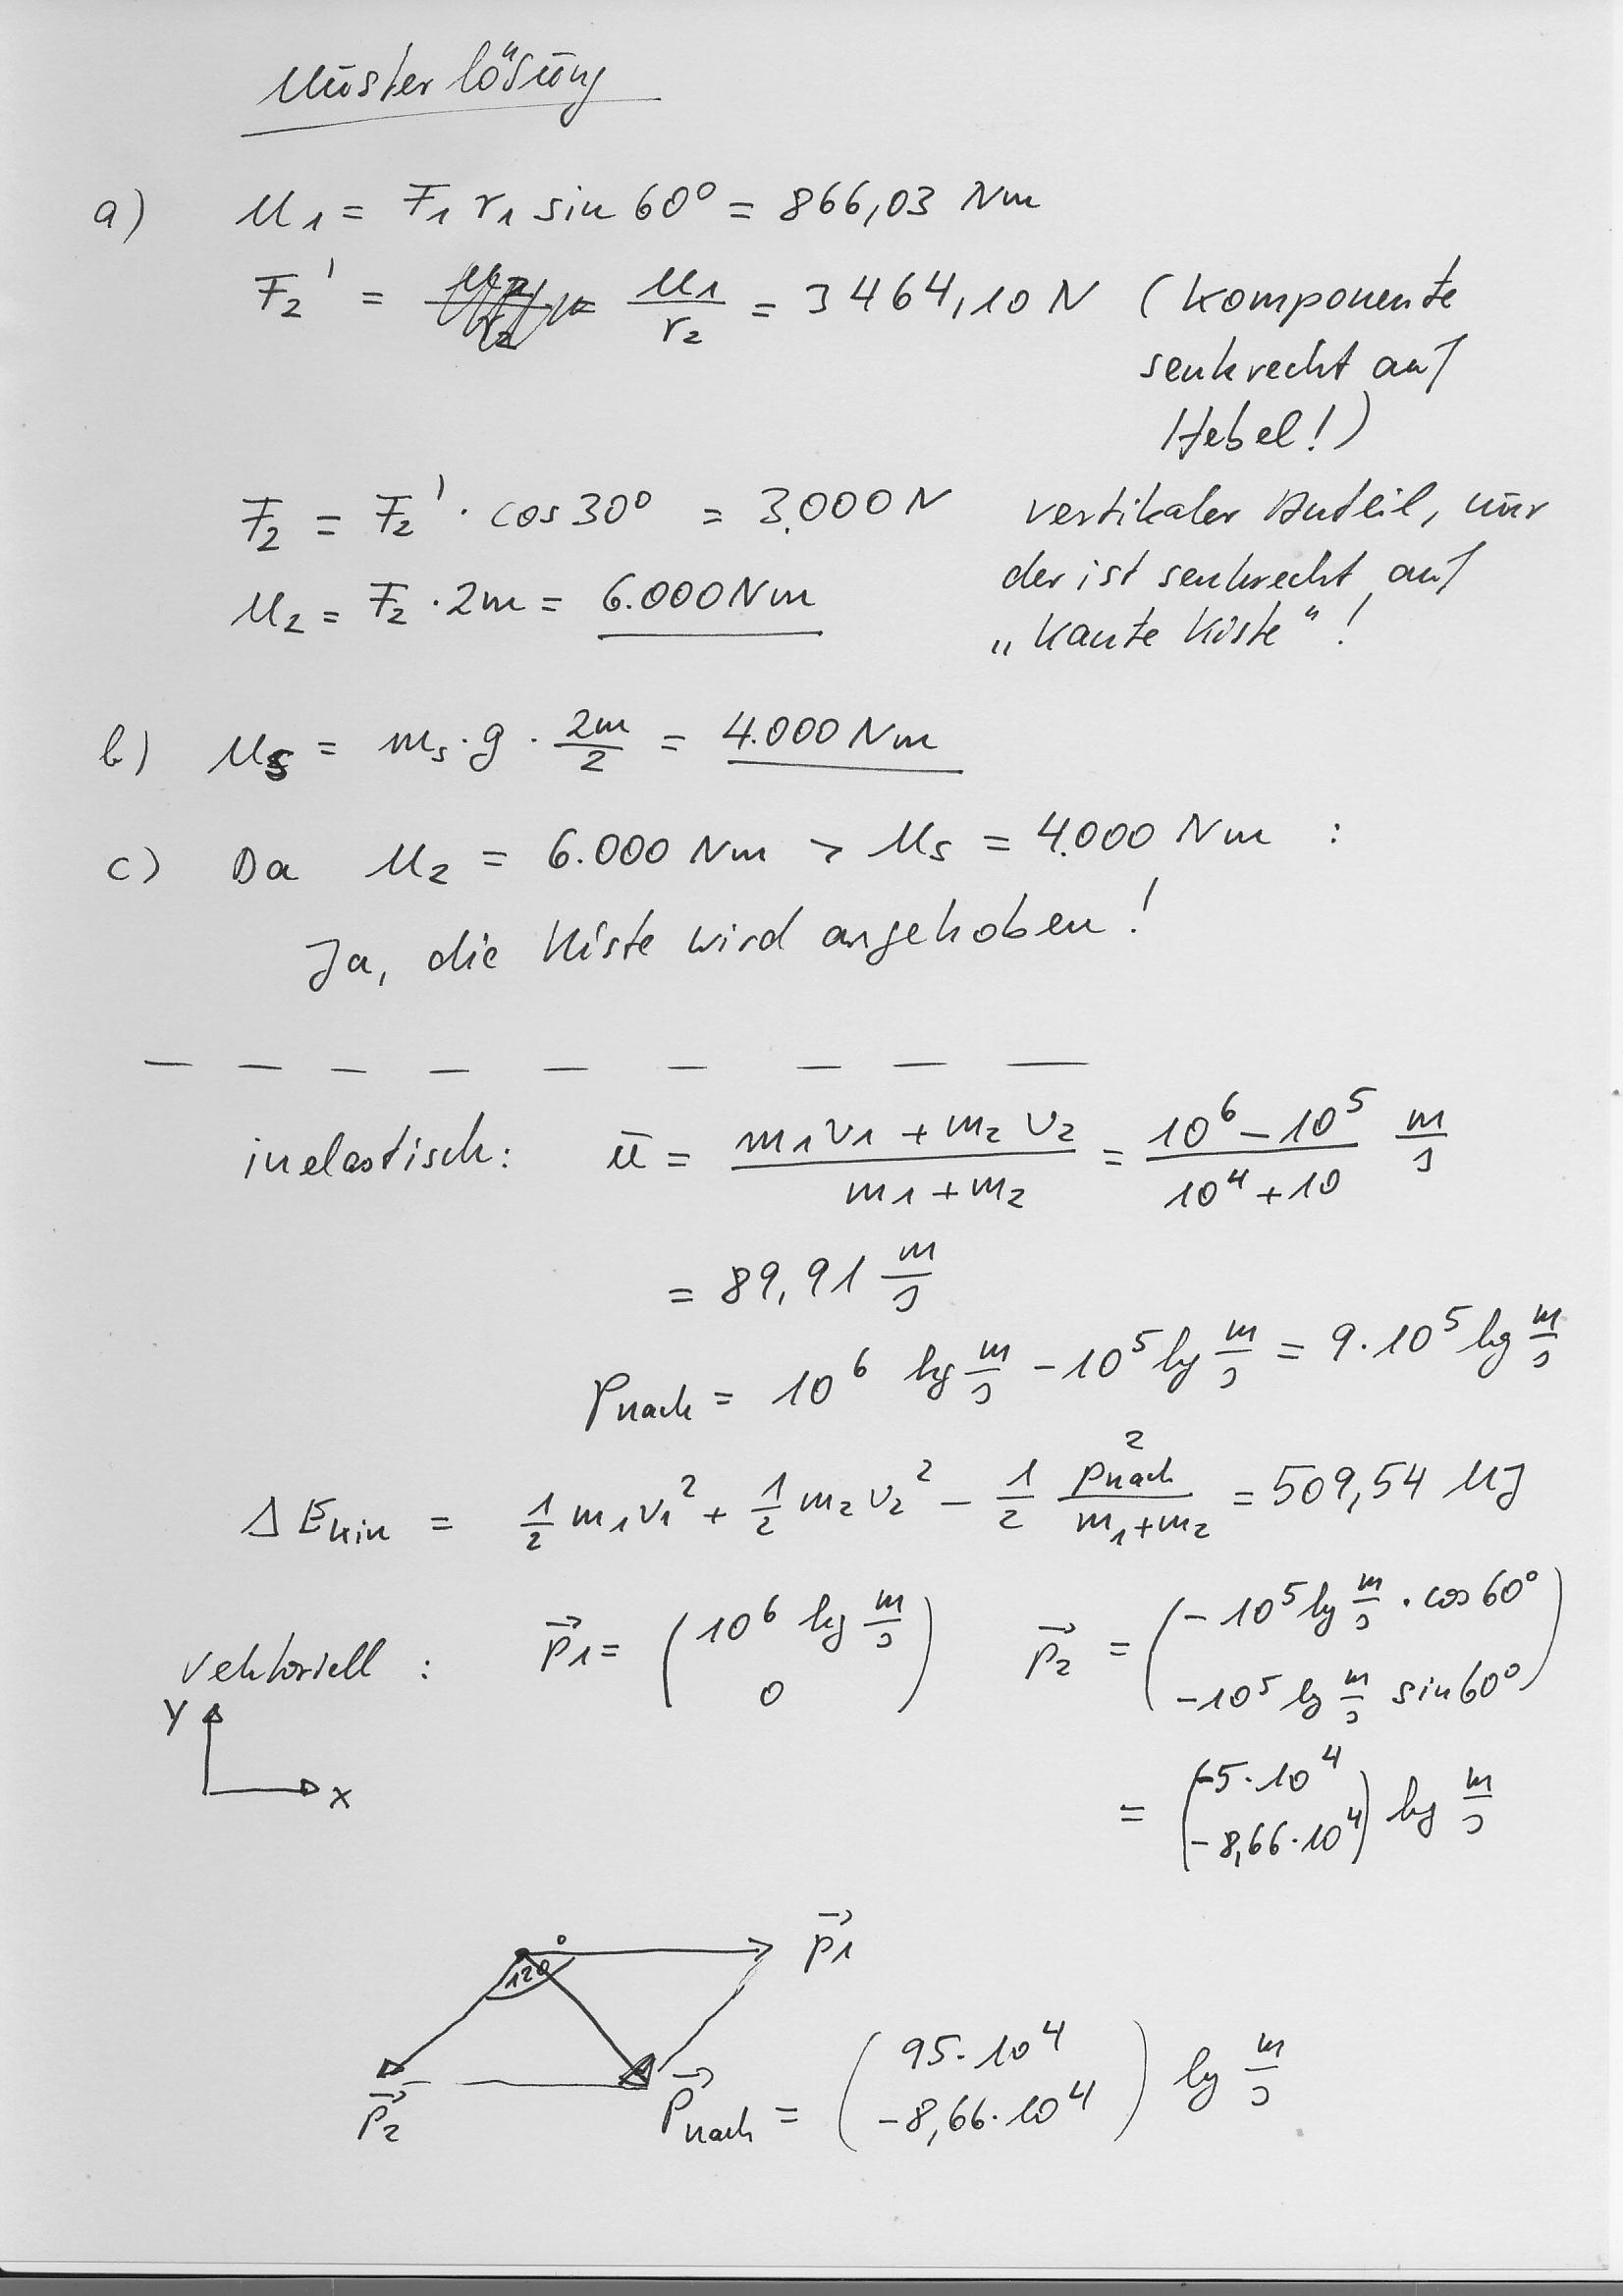 Musterlösung
a) M₁ = F₁ r₁ sin 60° = 866,03 Nm
F₂' = M₁/r₂ = 3464,10 N (Komponente
senkrecht auf
Hebel!)
F₂ = F₂' · cos 30° = 3.000 N vertikaler Anteil, nur
der ist senkrecht auf
M₂ = F₂ · 2m = 6.000 Nm
„Kante Kiste“!
b) M_S = m_s · g · 2m/2 = 4.000 Nm
c) Da M₂ = 6.000 Nm > M_S = 4.000 Nm :
Ja, die Kiste wird angehoben!
inelastisch: ū = (m₁v₁ + m₂v₂)/(m₁ + m₂) = (10⁶ - 10⁵)/(10⁴ + 10) m/s
= 89,91 m/s
p_nach = 10⁶ kg m/s - 10⁵ kg m/s = 9 · 10⁵ kg m/s
ΔE_kin = 1/2 m₁v₁² + 1/2 m₂v₂² - 1/2 p_nach²/(m₁+m₂) = 509,54 MJ
vektoriell : p⃗₁ = (10⁶ kg m/s, 0) p⃗₂ = (-10⁵ kg m/s · cos 60°, -10⁵ kg m/s sin 60°)
Y
x
= (-5 · 10⁴, -8,66 · 10⁴) kg m/s
p⃗₁
120°
p⃗₂
p⃗_nach = (95 · 10⁴, -8,66 · 10⁴) kg m/s